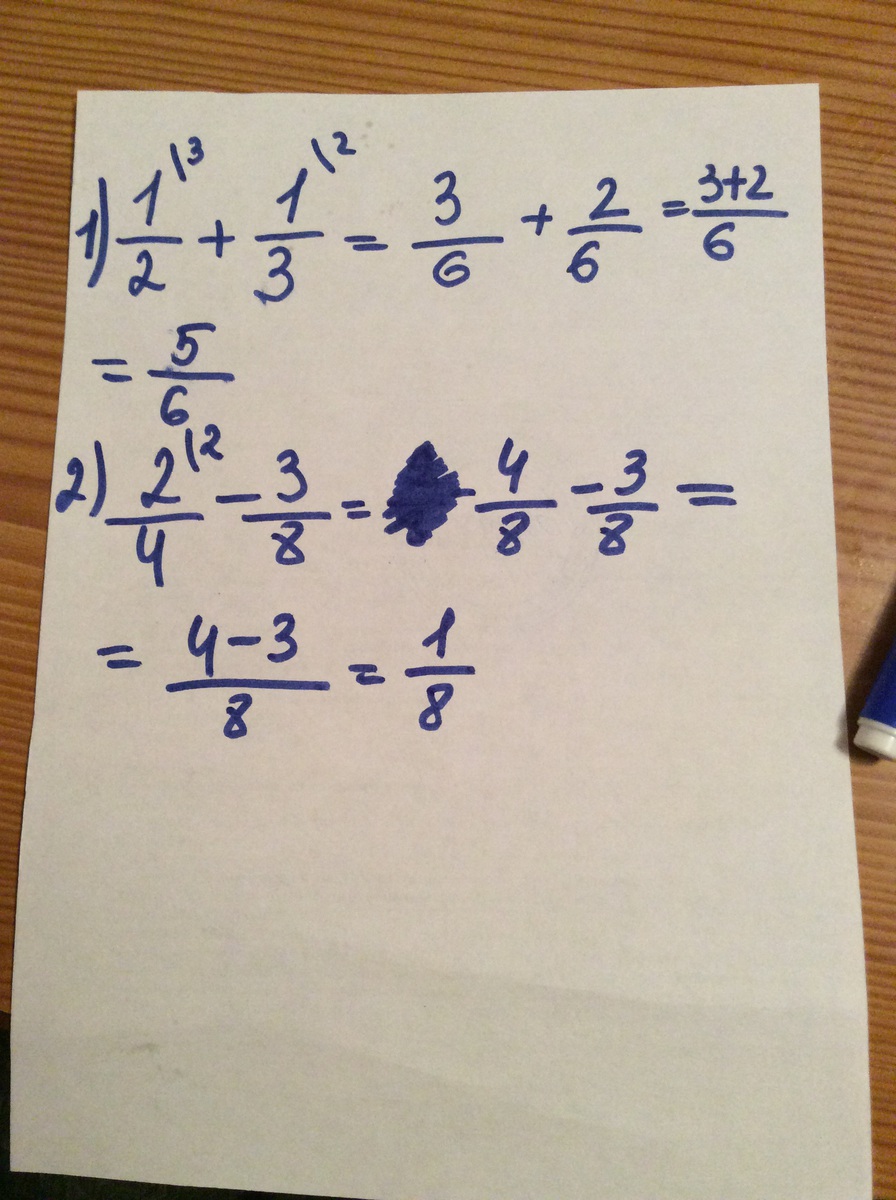 1) 1\3/2 + 1\2/3 = 3/6 + 2/6 = 3+2/6
= 5/6
2) 2\2/4 - 3/8 = 4/8 - 3/8 =
= 4-3/8 = 1/8